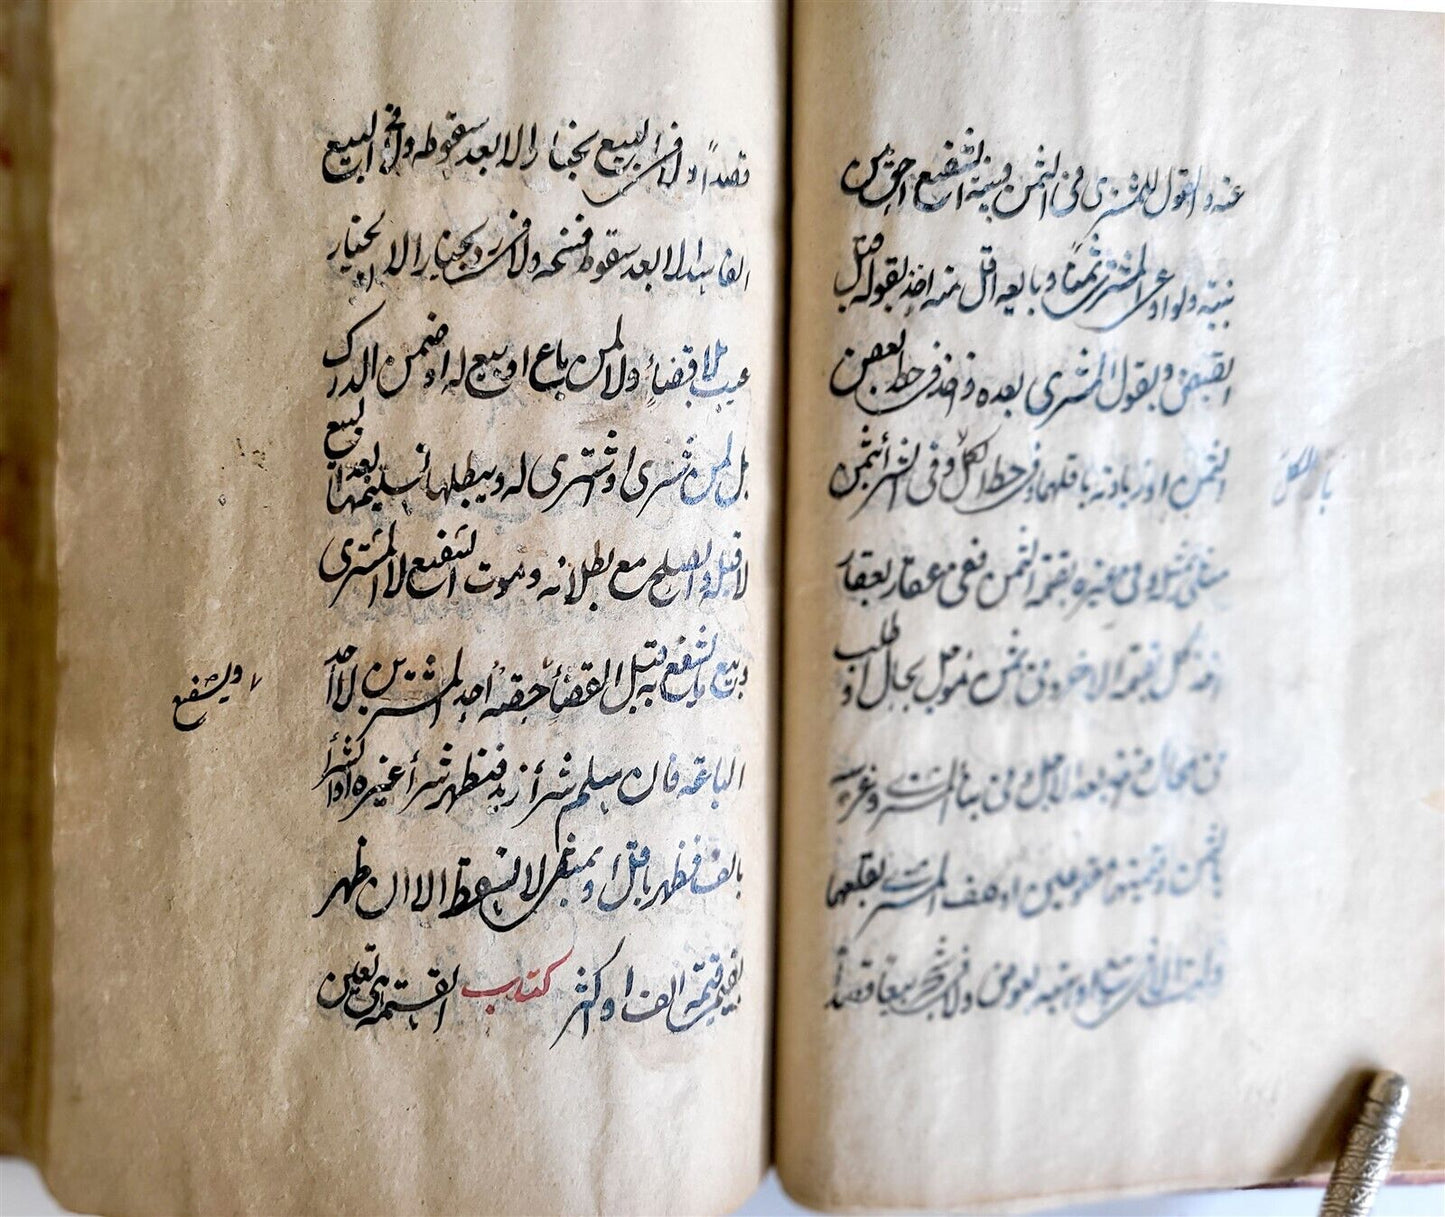 عنه والقول للمشتري في الثمن وبينة الشفيع احق من
بينته ولو ادعى المشتري ثمنا وبايعه اقل منه اخذ بقوله قبل
القبض وبقول المشتري بعده واخذ في حط البعض
الثمن او زيادته باقلهما وفي حط الكل وفي الشراء بثمن
بالكل
مثلي بمثله وفي غيره بقيمة الثمن ففي عقار بعقار
اخذ كل بقيمة الاخر وفي ثمن مؤجل بحال او طلب
في الحال واخذ بعد الاجل وفي بناء المشتري وغرسه
بالثمن وقيمتهما مقلوعين او كلف المشتري بقلعهما
قصدا ولا في البيع بخيار الا بعد سقوطه ولا في البيع
الفاسد الا بعد سقوط فسخه ولا في رد بخيار الا بخيار
عيب بلا قضاء ولا لمن باع او بيع له او ضمن الدرك
بل لمن شرى او اشترى له ويبطلها تسليمها بعد البيع
لا قبله والصلح مع بطلانه وموت الشفيع لا المشتري
وبيع ما يشفع به قبل القضاء حقه احد المشترين لا احد
ويشفع
الباعة فان سلم شراء زيد فظهر شراء غيره او الشراء
بالف فظهر باقل او بمثلي لا تسقط الا ان ظهر
بقيمي قيمته الف او اكثر كتاب القسمة هي تعيين